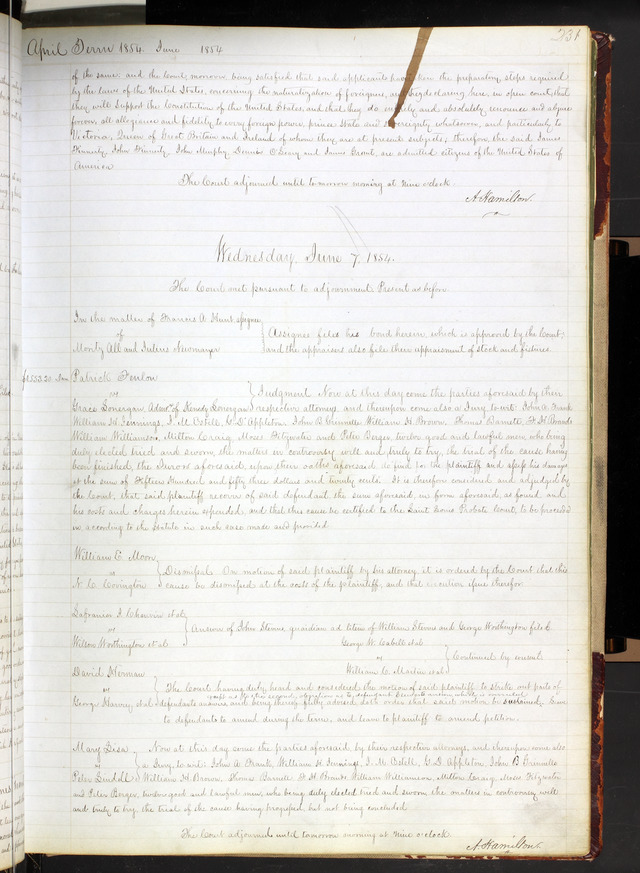 April Term 1854. June 1854
231
of the same: and the Court, moreover being satisfied that said applicants have taken the preparatory steps required
by the laws of the United States, concerning the naturalization of foreigners, and they declaring here, in open court, that
they will support the Constitution of the United States and that they do entirely and absolutely renounce and abjure
forever, all allegiance and fidelity to every foreign power, prince State and sovereignty whatsoever, and particularly to
Victoria, Queen of Great Britain and Ireland of whom they are at present subjects; therefore the said James
Kinnerly John Kinnerly, John Murphy Dennis O'Leary and James Grant, are admitted citizens of the United States of
America
The Court adjourned until tomorrow morning at Nine o'clock
A. Hamilton.
Wednesday, June 7, 1854.
The Court met pursuant to adjournment Present as before
In the matter of Francis A Hunt assignee
of
Assignee files his bond herein which is approved by the Court;
Montz All and Julius Neumayer
and the appraisers also file their appraisment of stock and fixtures
$1553.20 Dam
Patrick Fenlon
vs
Judgment Now at this day come the parties aforesaid by their
Grace Lonergan Admx of Kenedy Lonergan
respective attorneys, and thereupon come also a Jury to wit: John A Frank
William H Jennings, J. M. Cabell, G. D. Appleton, John B Gremmelle William H Brown, Thomas Barnett F H Brands
William Williamson, Milton Craig, Moses Fitzwater and Peter Berger, twelve good and lawful men, who being
duly elected tried and sworn, the matters in controversy well and truly to try, the trial of the cause having
been finished, the Jurors aforesaid, upon their oaths aforesaid do find for the plaintiff and assess his damages
at the sum of Fifteen Hundred and fifty three dollars and twenty cents. It is therefore considered and adjudged by
the Court, that said plaintiff recover of said defendant the sum aforesaid, in form aforesaid as found and
his costs and charges herein expended, and that this cause be certified to the Saint Louis Probate Court, to be proceeded
in according to the Statute in such case made and provided
William E Moon
vs
Dismissed On motion of said plaintiff by his attorney it is ordered by the Court that this
N. C. Covington
cause be dismissed at the costs of the plaintiff, and that execution issue therefor
Lafranior J. Chauvin et al
vs
Answer of John Stevens, guardian ad litem of William Stevens and George Worthington filed.
Wilson Worthington et al
George W. Cabell et al
vs
Continued by consent
William C. Martin et al
David Norman
vs
The Court having duly heard and considered the motion of said plaintiff to strike out parts of
except as to the second, allegation as to defendant
George Harvey et al
defendants answer, and being thereof fully advised, doth order that said motion be sustained. Leave
to defendants to amend during the term, and leave to plaintiff to amend petition.
Mary Lisa
vs
Now at this day come the parties aforesaid by their respective attorneys, and thereupon come also
a Jury to wit: John A Frank, William H Jennings, J. M. Cabell, G. D Appleton, John B Gremmelle
Peter Lindell
William H Brown, Thomas Barnett F H Brands William Williamson, Milton Craig, Moses Fitzwater
and Peter Berger, twelve good and lawful men, who being duly elected tried and sworn the matters in controversy well
and truly to try the trial of the cause having progressed but not being concluded
The Court adjourned until tomorrow morning at Nine o'clock
A. Hamilton.